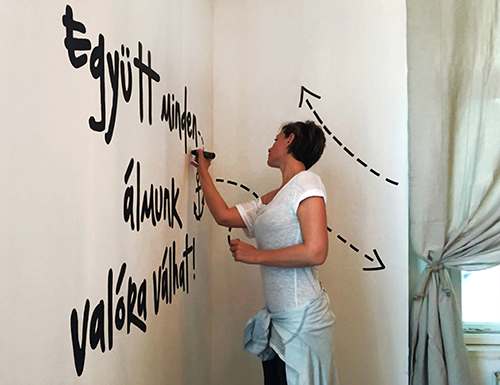 Együtt minden
álmunk
valóra válhat!